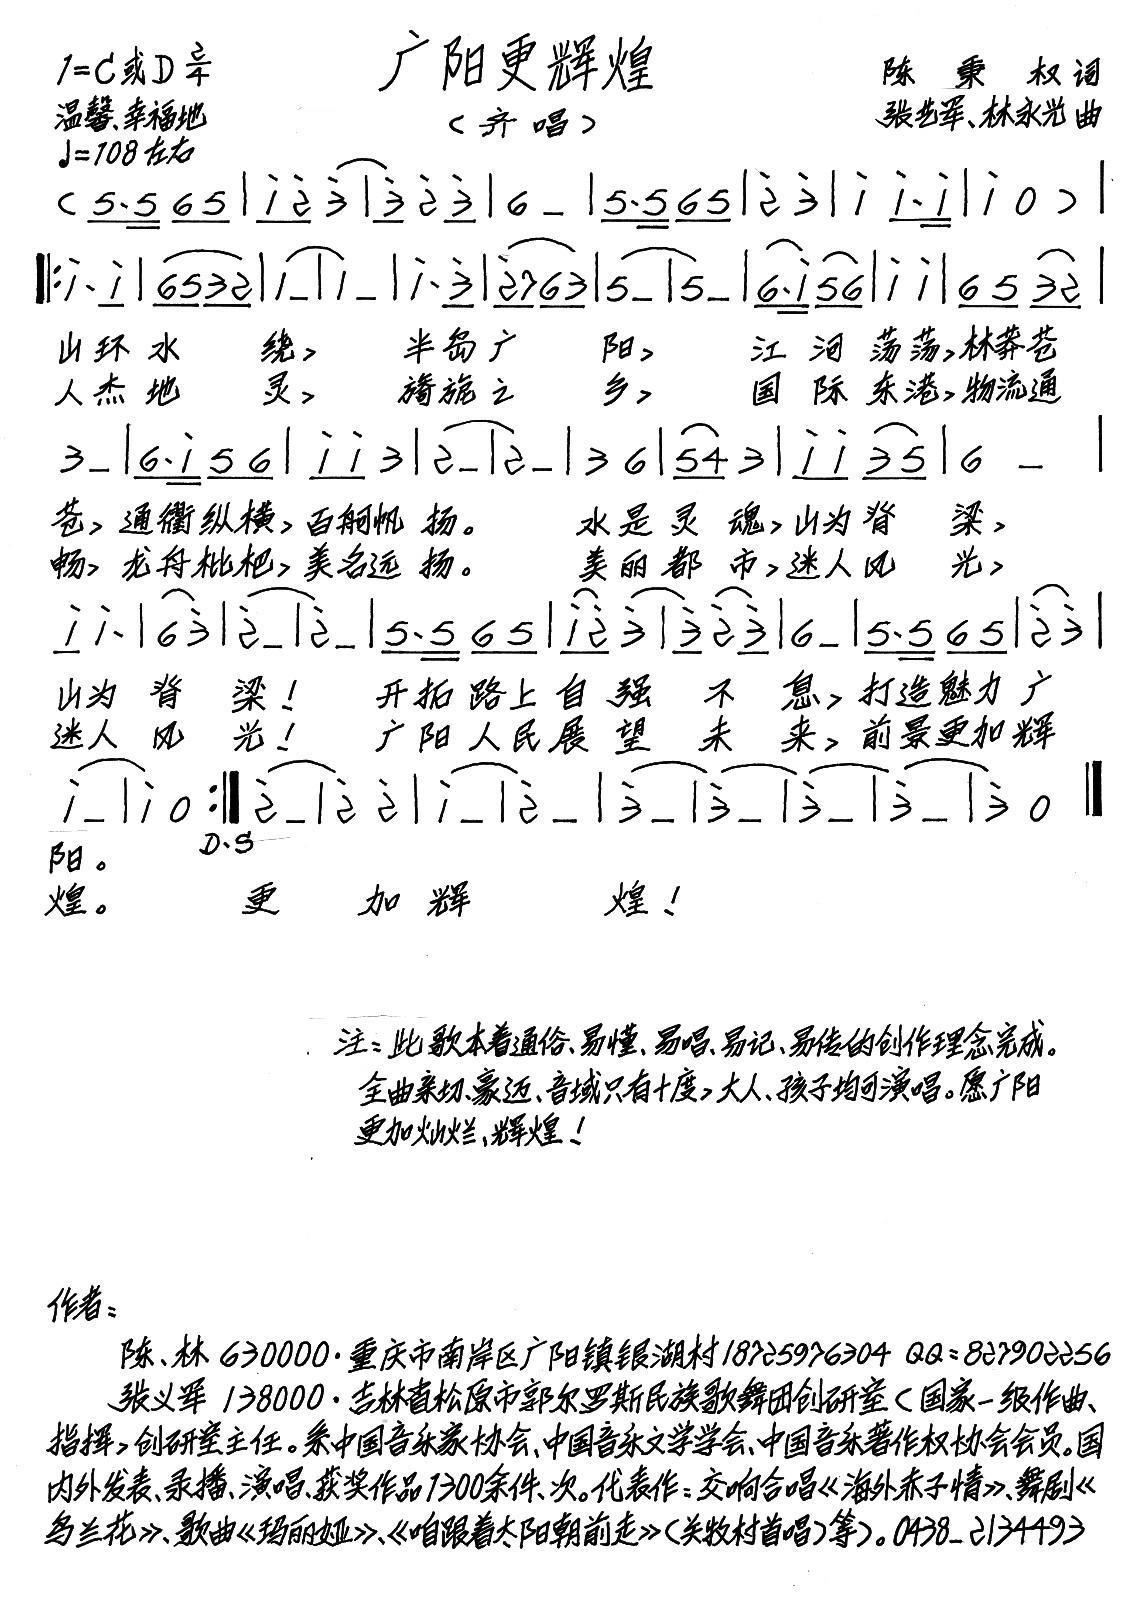 广阳更辉煌
1=C或D 2/4
陈秉权词
温馨、幸福地
(齐唱)
张艺军、林永光曲
♩=108左右
(5·5 6 5|i 2 3|3 2 3|6 –|5·5 6 5|2 3|i i·i|i 0)|
‖:i· i|6 5 3 2|i –|i –|i· 3|2 7 6 3|5 –|5 –|6·i 5 6|i i|6 5 3 2|
山环水 绕, 半岛广 阳, 江河荡荡,林莽苍
人杰地 灵, 旖旎之 乡, 国际东港,物流通
3 –|6·i 5 6|i i 3|2 –|2 –|3 6|5 4 3|i i 3 5|6 –|
苍,通衢纵横,百舸帆扬。 水是灵魂,山为脊梁,
畅,龙舟枇杷,美名远扬。 美丽都市,迷人风光,
i i·|6 3|2 –|2 –|5·5 6 5|i 2 3|3 2 3|6 –|5·5 6 5|2 3|
山为脊梁! 开拓路上自强不息,打造魅力广
迷人风光! 广阳人民展望未来,前景更加辉
i –|i 0:‖2 –|2 2|i –|2 –|3 –|3 –|3 –|3 –|3 0‖
D.S
阳。
煌。 更 加辉 煌!
注:此歌本着通俗、易懂、易唱、易记、易传的创作理念完成。
全曲亲切、豪迈、音域只有十度,大人、孩子均可演唱。愿广阳
更加灿烂、辉煌!
作者:
陈、林 630000·重庆市南岸区广阳镇银湖村18725976304 QQ:827902256
张义军 138000·吉林省松原市郭尔罗斯民族歌舞团创研室(国家一级作曲、
指挥,创研室主任。系中国音乐家协会、中国音乐文学学会、中国音乐著作权协会会员。国
内外发表、录播、演唱、获奖作品1300余件、次。代表作:交响合唱《海外赤子情》、舞剧《
乌兰花》、歌曲《玛丽娅》、《咱跟着太阳朝前走》(关牧村首唱)等)。0438–2134493